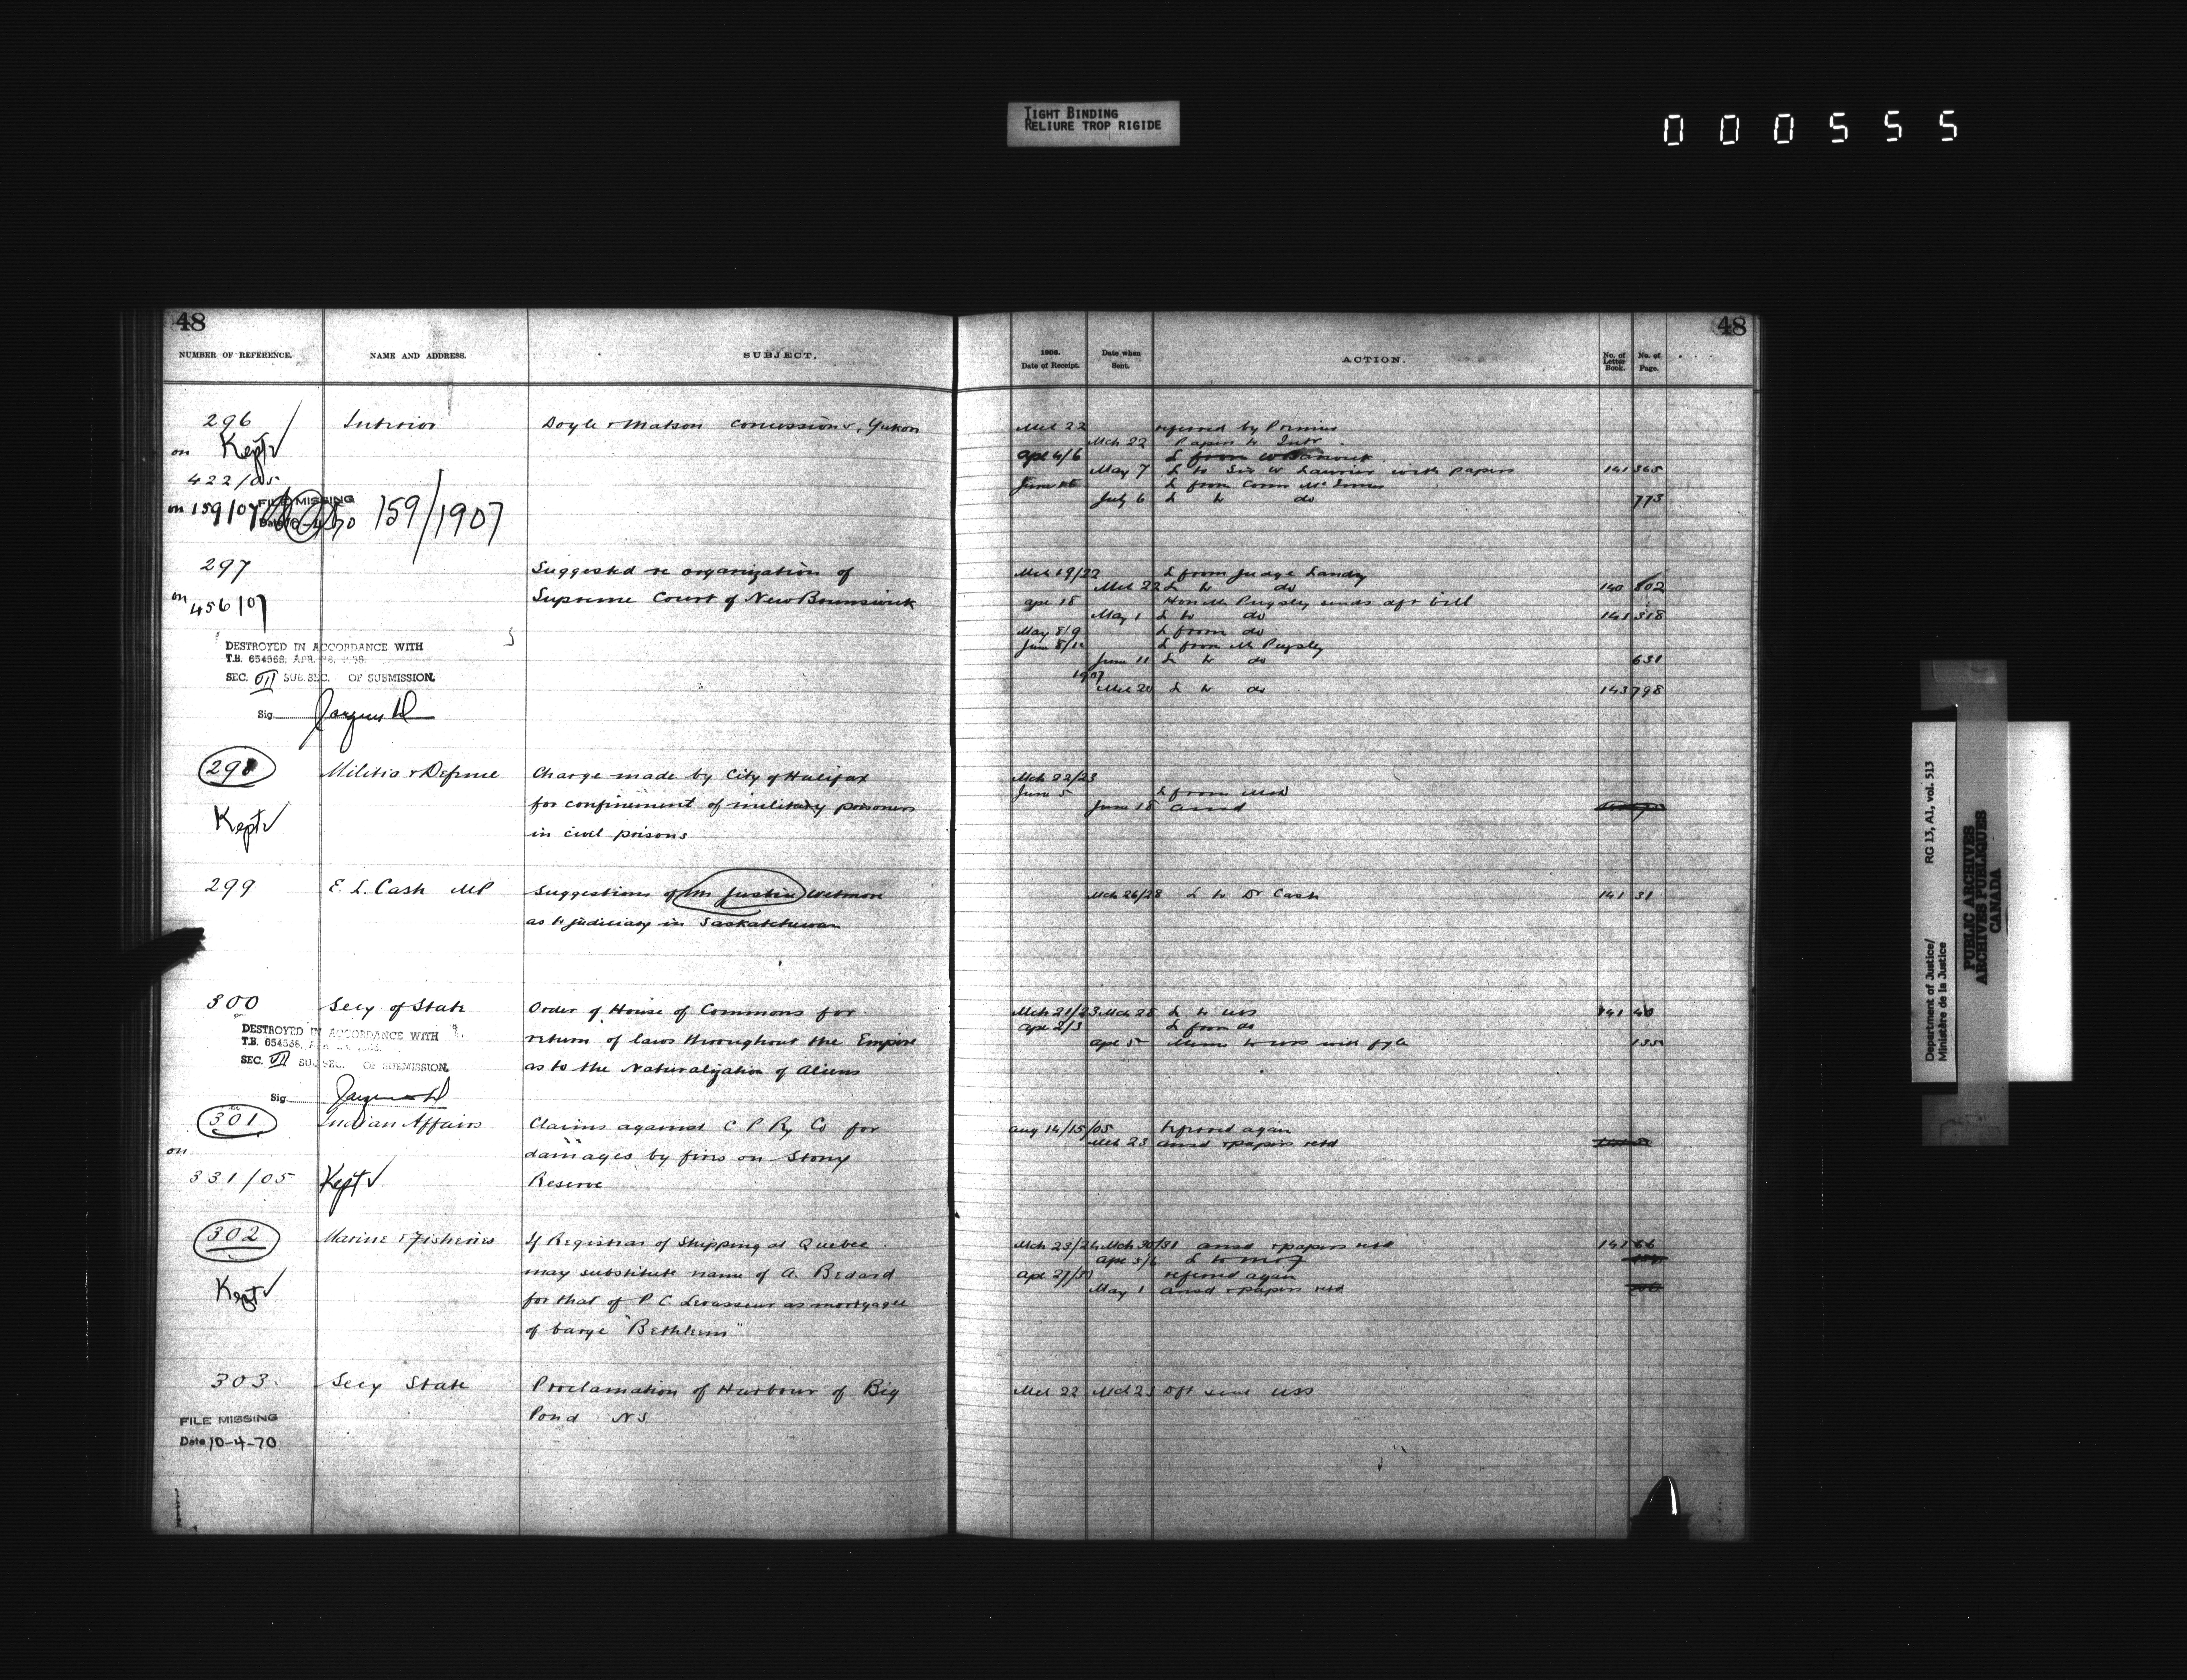 TIGHT BINDING
RELIURE TROP RIGIDE
000555
48
NUMBER OF REFERENCE.
NAME AND ADDRESS.
SUBJECT.
296
Interior
Doyle & Matson concessions, Yukon
Kept
on
422/05
FILE MISSING
on 159/07
Date 10-4-70
159/1907
297
Suggested re organization of
on
Supreme Court of New Brunswick
456/07
DESTROYED IN ACCORDANCE WITH
T.B. 654568, APR.
SEC. VII SUB.SEC. OF SUBMISSION.
Sig
298
Militia & Defence
Charge made by City of Halifax
Kept
for confinement of military prisoners
in civil prisons
299
E. L. Cash MP
Suggestions of Mr Justice Wetmore
as to judiciary in Saskatchewan
300
Secy of State
Order of House of Commons for
DESTROYED IN ACCORDANCE WITH
T.B. 654568,
return of laws throughout the Empire
SEC. VII SUB.SEC. OF SUBMISSION.
as to the Naturalization of Aliens
Sig
301
Indian Affairs
Claims against C P Ry Co for
on
damages by fires on Stony
331/05
Kept
Reserve
302
Marine & Fisheries
If Registrar of Shipping at Quebec
Kept
may substitute name of A. Bedard
for that of P. C. Levasseur as mortgagee
of barge "Bethleem"
303
Secy State
Proclamation of Harbour of Big
Pond NS
FILE MISSING
Date 10-4-70
48
1906.
Date of Receipt.
Date when
Sent.
ACTION.
No. of
Letter
Book.
No. of
Page.
Mch 22 referred by Premier
Mch 22 Papers to Intr
Ape 4/6 L from
May 7 L to Sir W Laurier with papers 141 365
June L from Comr McInnes
July 6 L to do 773
Mch 19/22 L from Judge Landry
Mch 22 L to do 140 802
Ape 18 Hon Mr Pugsley sends dft bill
May 1 L to do 141 318
May 8/9 L from do
June 8/11 L from Mr Pugsley
June 11 L to do 631
1907
Mch 20 L to do 143 798
Mch 22/23
June 5 L from
June 18 ansd
Mch 26/28 L to Dr Cash 141 31
Mch 21/23 Mch 28 L to USS 141 40
Ape 2/3 L from do
Ape 5 Memo to USS with fyle 135
Aug 14/15/05 referred again
Mch 23 ansd & papers retd
Mch 23/24 Mch 30/31 ansd & papers retd 141 66
Ape 5/6 L to M of F
Ape 27/30 referred again
May 1 ansd & papers retd
Mch 22 Mch 23 Dft sent USS
Department of Justice/ RG 13, A1, vol. 513
Ministère de la Justice
PUBLIC ARCHIVES
ARCHIVES PUBLIQUES
CANADA